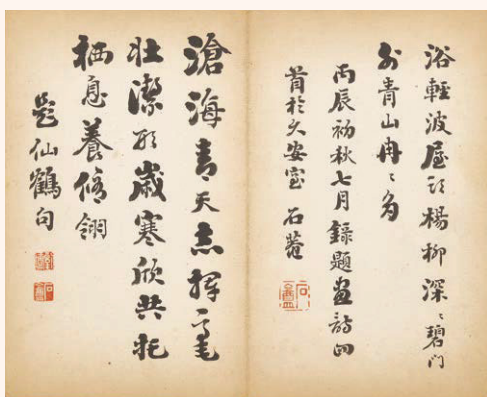 浴輕波屋頭楊柳深〻碧門
外青山冉〻多
丙辰初秋七月錄題畫詩四
首於久安室 石菴
滄海青天志揮毫
壯潔形歲寒欣共托
栖息養脩翎
題仙鶴句